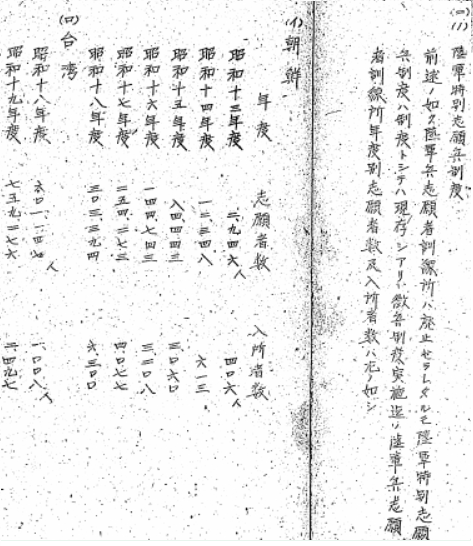 (ロ)(1) 陸軍特別志願兵制度
前述ノ如ク陸軍兵志願者訓練所ハ廃止セラレタルモ陸軍特別志願
兵制度ハ制度トシテハ現存シアリ、徴兵制度実施迄ノ陸軍兵志願
者訓練所年度別志願者数及入所者数ハ左ノ如シ
(イ) 朝鮮
年度 志願者数 入所者数
昭和十三年度 二、九四六人 四〇六人
昭和十四年度 一二、三四八 六一三
昭和十五年度 八四、四四三 三、〇六〇
昭和十六年度 一四四、七四三 三、二〇八
昭和十七年度 二五四、二七三 四、〇七七
昭和十八年度 三〇三、三九四 六、三〇〇
(ロ) 台湾
昭和十八年度 六〇一、一四七人 一、〇〇八人
昭和十九年度 七五九、二七六 二、四九七